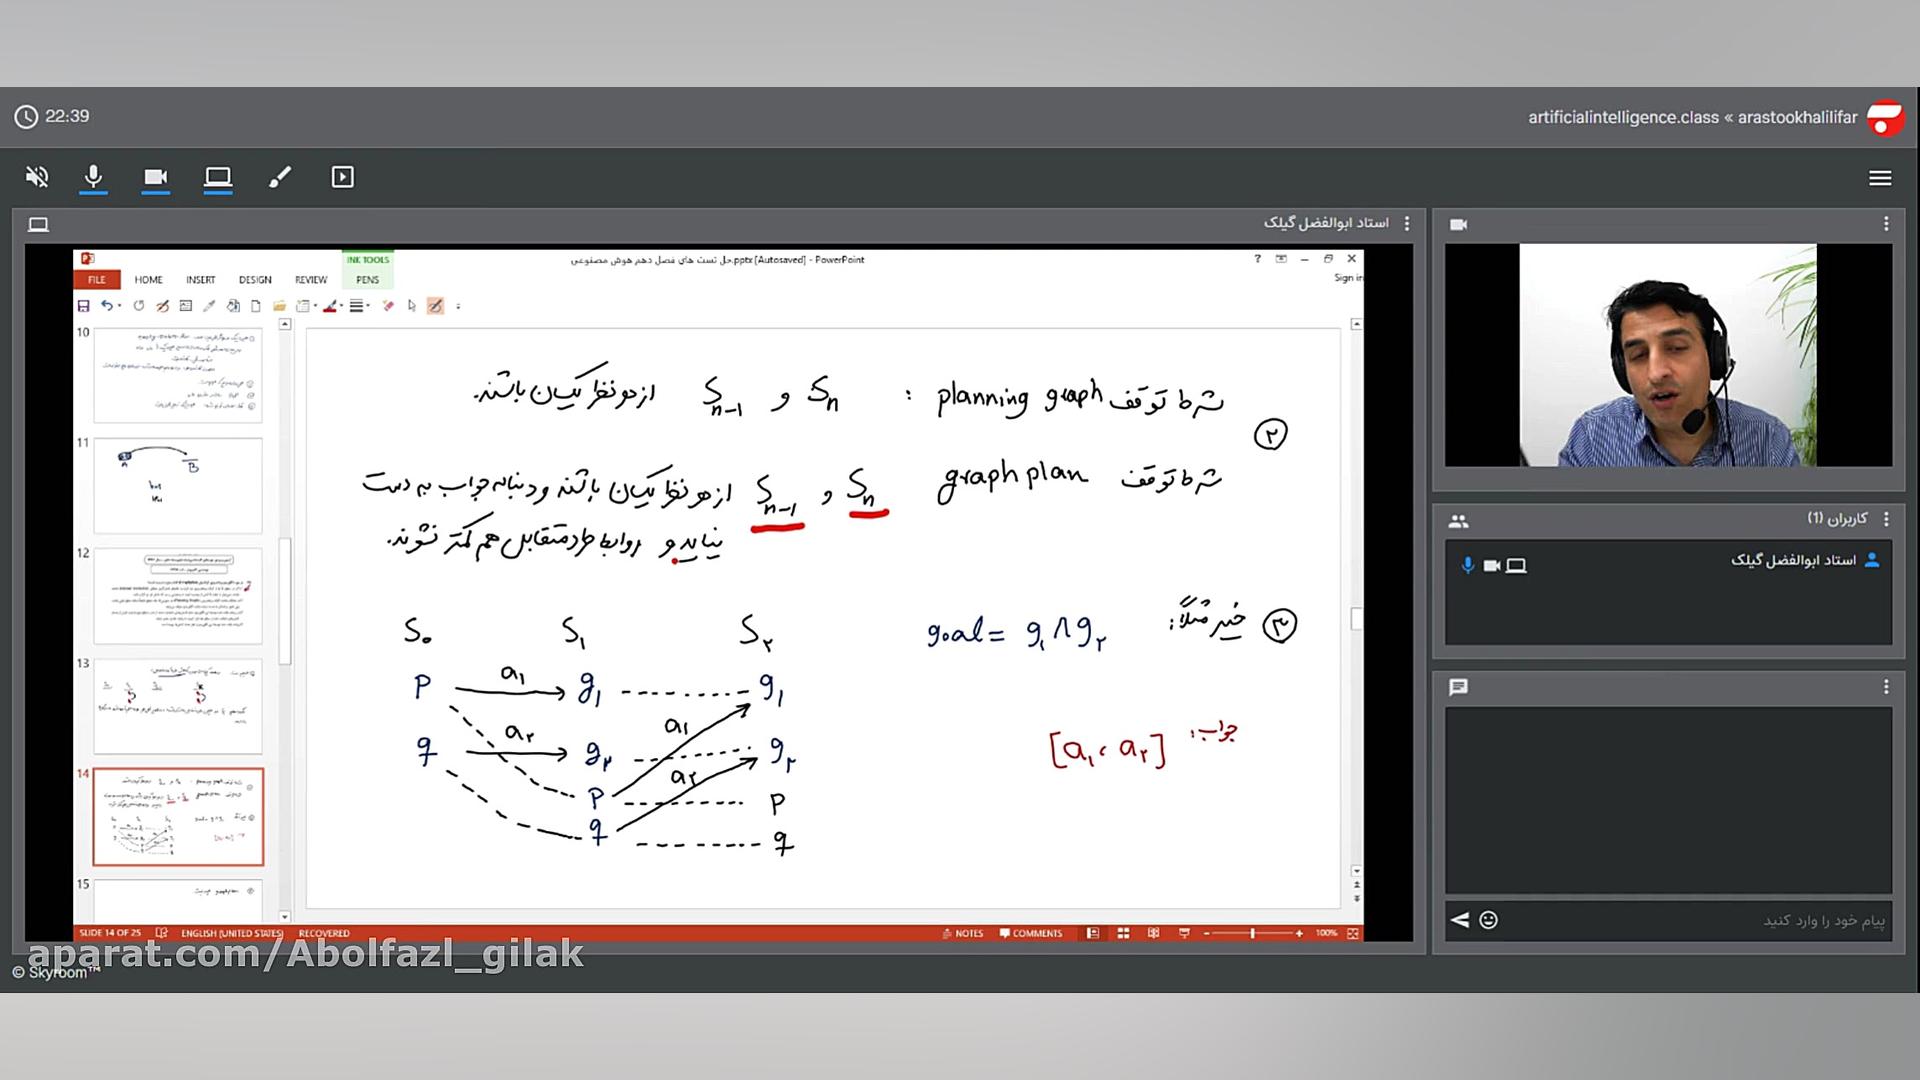 22:39
artificialintelligence.class « arastookhalilifar
استاد ابوالفضل گیلک
INK TOOLS
حل تست های فصل دهم هوش مصنوعی.pptx [Autosaved] - PowerPoint
FILE HOME INSERT DESIGN REVIEW PENS
Sign in
10
11
A B
12
13
14
15
شرط توقف planning graph : Sn و Sn-1 از هر نظر یکسان باشند.
۲
شرط توقف graph plan Sn و Sn-1 از هر نظر یکسان باشند و دنباله جواب به دست
نیاید و روابط طرد متقابل هم کمتر نشوند.
۳ خیر مثلاً: goal = g۱ ∧ g۲
S۰ S۱ S۲
p a۱ g۱ g۱
q a۲ g۲ a۱ g۲
جواب: [a۱، a۲]
p a۲ p
q q
SLIDE 14 OF 25 ENGLISH (UNITED STATES) RECOVERED NOTES COMMENTS 100%
aparat.com/Abolfazl_gilak
© Skyroom™
کاربران (1)
استاد ابوالفضل گیلک
پیام خود را وارد کنید